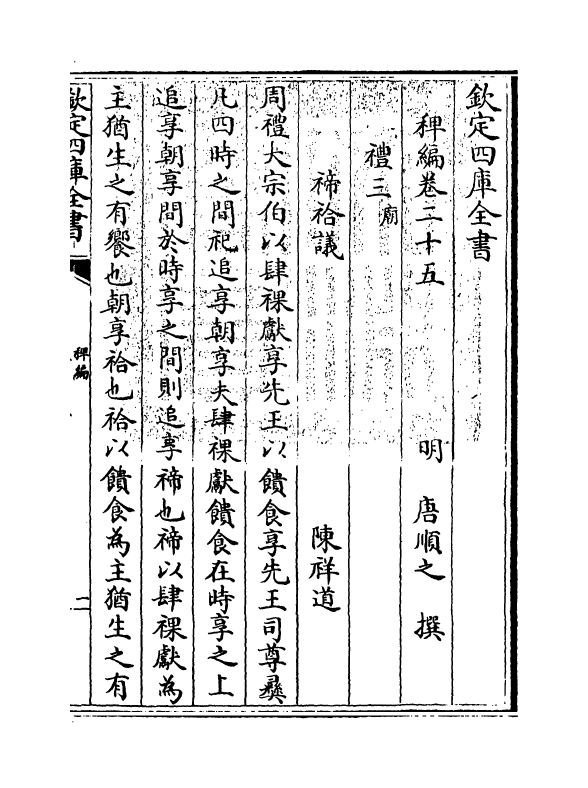 欽定四庫全書
稗編卷二十五　明　唐順之　撰
禮三廟
禘祫議　陳祥道
周禮大宗伯以肆祼獻享先王以饋食享先王司尊彞
凡四時之間祀追享朝享夫肆祼獻饋食在時享之上
追享朝享間於時享之間則追享禘也禘以肆祼獻為
主猶生之有饗也朝享祫也祫以饋食為主猶生之有
欽定四庫全書
稗編